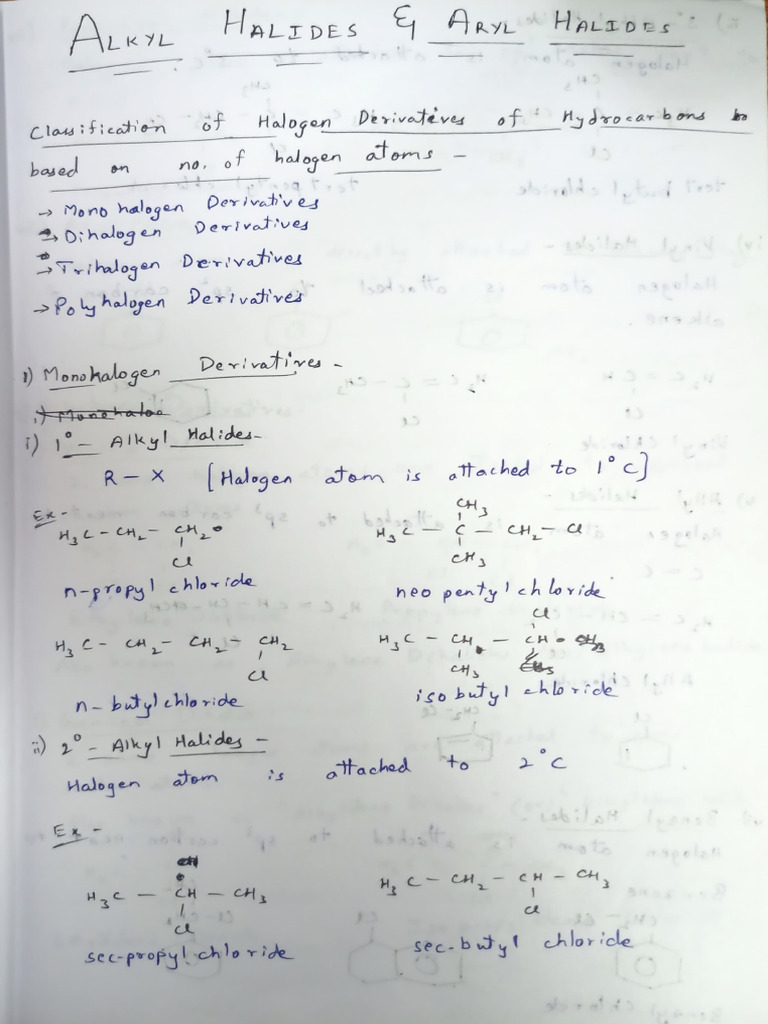 ALKYL HALIDES & ARYL HALIDES
Classification of Halogen Derivatives of Hydrocarbons
based on no. of halogen atoms -
→ Mono halogen Derivatives
→ Dihalogen Derivatives
→ Trihalogen Derivatives
→ Polyhalogen Derivatives
1) Monohalogen Derivatives -
i) 1° - Alkyl Halides -
R - X [Halogen atom is attached to 1° C]
Ex -
CH₃
H₃C - CH₂ - CH₂ H₃C - C - CH₂ - Cl
Cl CH₃
n-propyl chloride neo pentyl chloride
Cl
H₃C - CH₂ - CH₂ - CH₂ H₃C - CH - CH
Cl CH₃
n-butyl chloride isobutyl chloride
ii) 2° - Alkyl Halides -
Halogen atom is attached to 2° C
Ex -
H₃C - CH - CH₃ H₃C - CH₂ - CH - CH₃
Cl Cl
sec-propyl chloride sec-butyl chloride